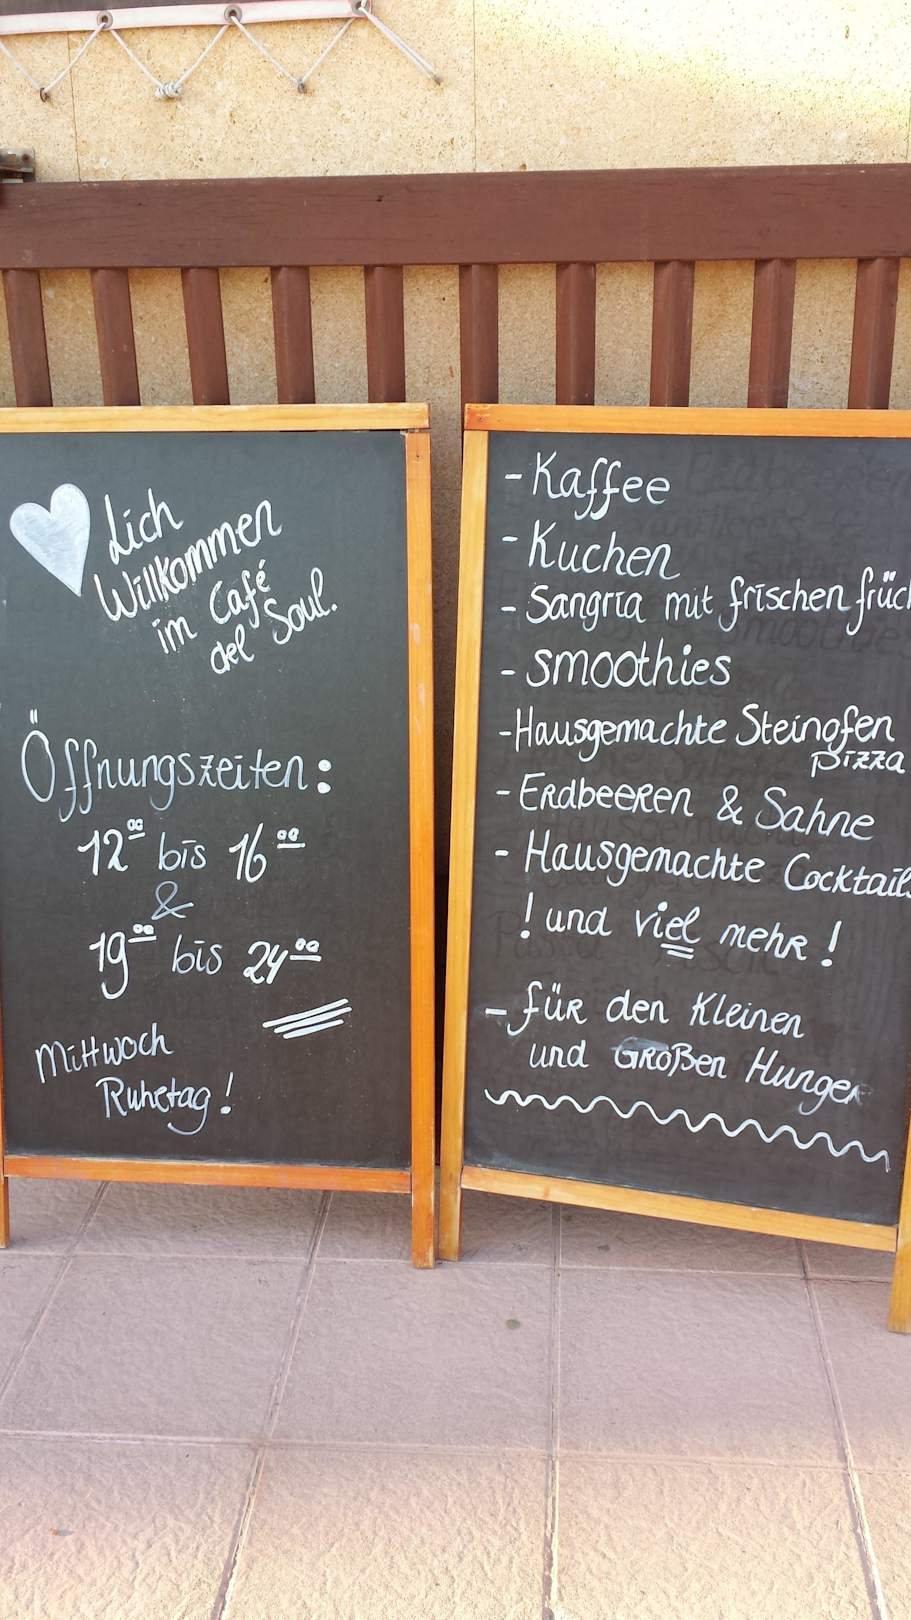 Lich
Willkommen
im Café
del Soul.
Öffnungszeiten:
12⁰⁰ bis 16⁰⁰
&
19⁰⁰ bis 24⁰⁰
Mittwoch
Ruhetag!
- Kaffee
- Kuchen
- Sangria mit frischen früch
- Smoothies
- Hausgemachte Steinofen
Pizza
- Erdbeeren & Sahne
- Hausgemachte Cocktails
! und viel mehr !
- für den Kleinen
und Großen Hunger